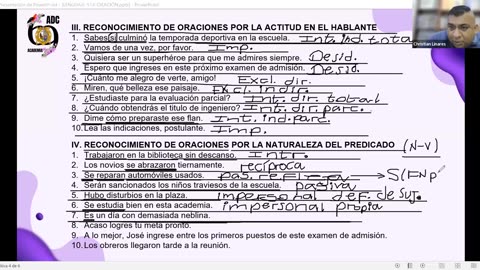 ADC
ACADEMIA
III. RECONOCIMIENTO DE ORACIONES POR LA ACTITUD EN EL HABLANTE
1. Sabes si culminó la temporada deportiva en la escuela. Int. ind. total
2. Vamos de una vez, por favor. Imp.
3. Quisiera ser un superhéroe para que me admires siempre. Desid.
4. Espero que ingreses en este próximo examen de admisión. Desid.
5. ¡Cuánto me alegro de verte, amigo! Excl. dir.
6. Miren, qué belleza ese paisaje. Excl. indir.
7. ¿Estudiaste para la evaluación parcial? Int. dir. total
8. ¿Cuándo obtendrás el título de ingeniero? Int. dir. parc.
9. Dime cómo preparaste ese flan. Int. ind. parc.
10. Lea las indicaciones, postulante. Imp.
IV. RECONOCIMIENTO DE ORACIONES POR LA NATURALEZA DEL PREDICADO (N-V)
1. Trabajaron en la biblioteca sin descanso. Intr.
2. Los novios se abrazaron tiernamente. recíproca
3. Se reparan automóviles usados. pas. refleja → S(FN p
4. Serán sancionados los niños traviesos de la escuela. pasiva
5. Hubo disturbios en la plaza. impersonal def. de suj.
6. Se estudia bien en esta academia. impersonal propia
7. Es un día con demasiada neblina.
8. Acaso logres tu meta pronto.
9. A lo mejor, José ingrese entre los primeros puestos de este examen de admisión.
10. Los obreros llegaron tarde a la reunión.
Christian Linares